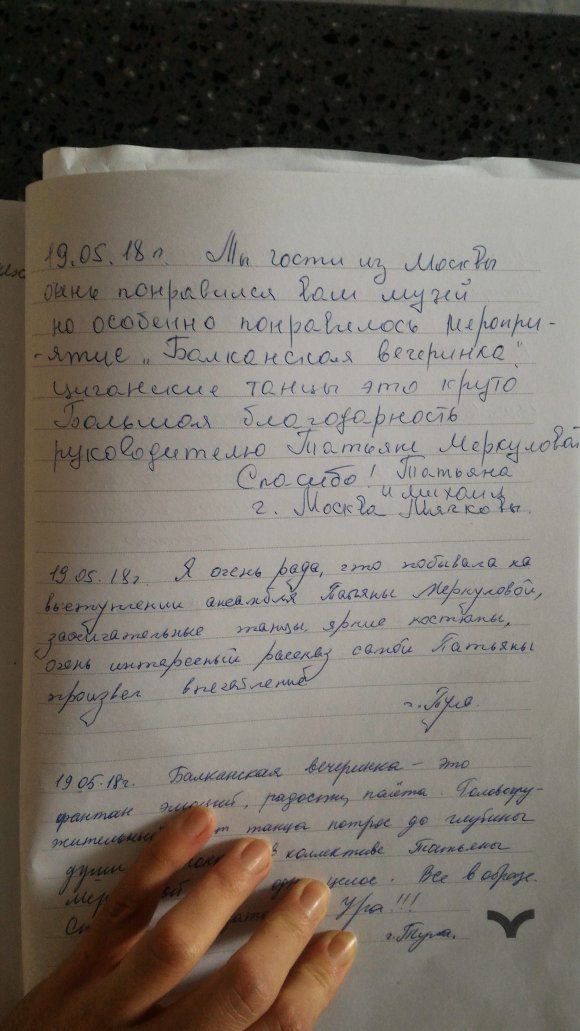 19.05.18 г. Мы гости из Москвы
очень понравился ваш музей
но особенно понравилось меропри-
-ятие „Балканская вечеринка".
Циганские танцы это круто
Большая благодарность
руководителю Татьяне Меркуловой
Спасибо! Татьяна
и Михаил
г. Москва Мячковы.
19.05.18г. Я очень рада, что побывала на
выступлении ансамбля Татьяны Меркуловой,
зажигательные танцы яркие костюмы,
очень интересный рассказ самой Татьяны
произвел впечатление
г. Тула.
19.05.18г. Балканская вечеринка – это
фантан эмоций, радости, полёта. Головокру-
жительный танца потряс до глубины
души коллективе Татьяны
целое. Все в образе.
Ура!!!
г. Тула.